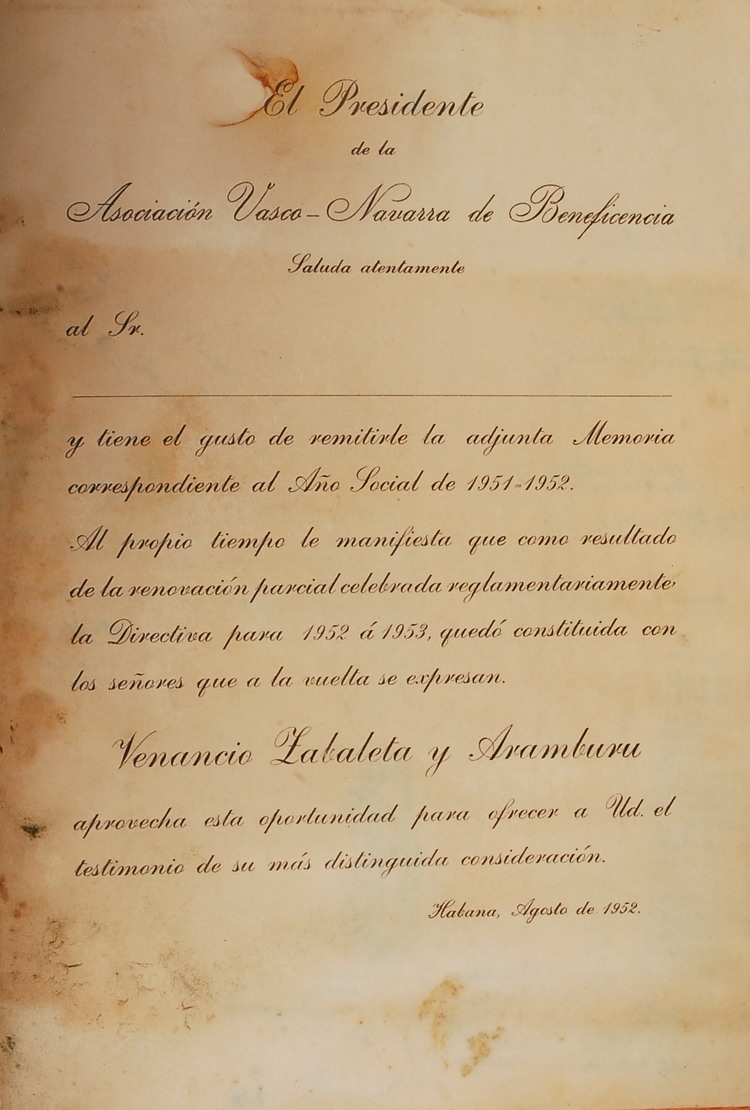 El Presidente
de la
Asociación Vasco-Navarra de Beneficencia
Saluda atentamente
al Sr.
y tiene el gusto de remitirle la adjunta Memoria
correspondiente al Año Social de 1951-1952.
Al propio tiempo le manifiesta que como resultado
de la renovación parcial celebrada reglamentariamente,
la Directiva para 1952 á 1953, quedó constituida con
los señores que a la vuelta se expresan.
Venancio Zabaleta y Aramburu
aprovecha esta oportunidad para ofrecer a Ud. el
testimonio de su más distinguida consideración.
Habana, Agosto de 1952.